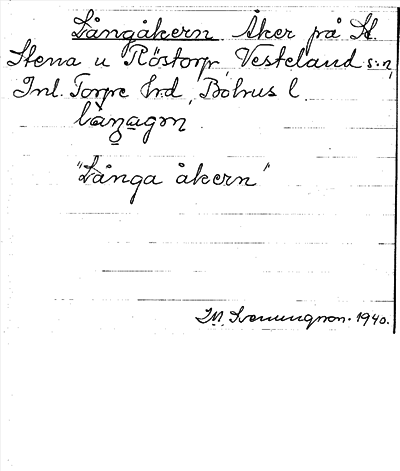 Långåkern Åker på St.
Stena u Röstorp, Vesteland s:n,
Inl. Torpe hrd, Bohus l.
"Långa åkern"
1940.